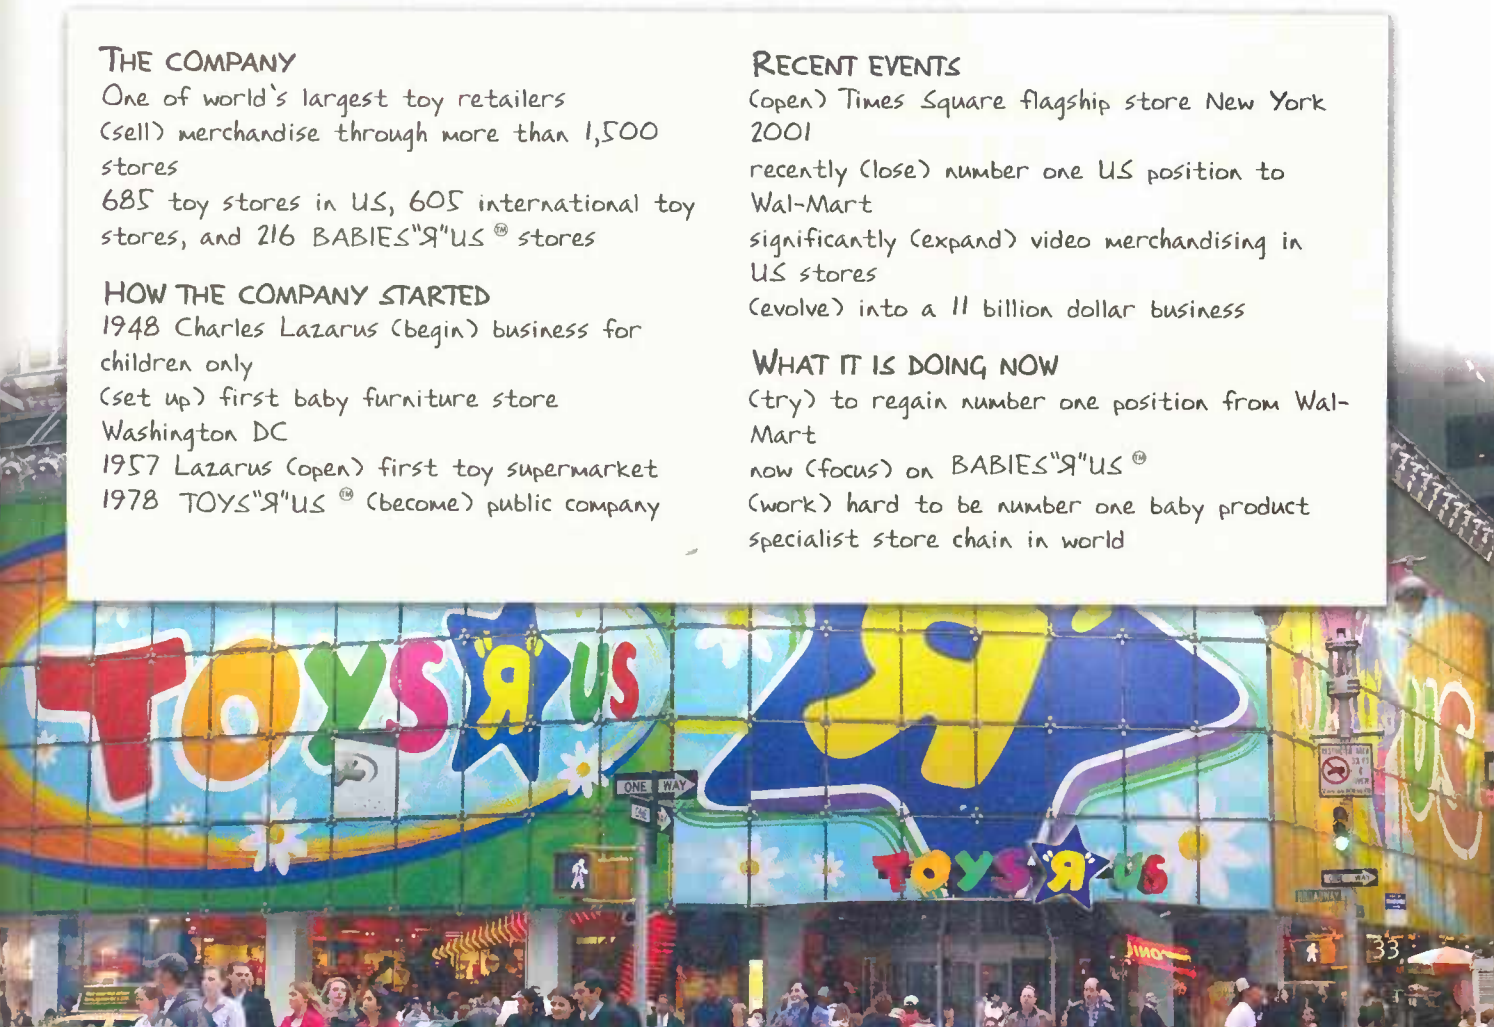 THE COMPANY
One of world's largest toy retailers
(sell) merchandise through more than 1,500
stores
685 toy stores in US, 605 international toy
stores, and 216 BABIES"Я"US ™ stores
HOW THE COMPANY STARTED
1948 Charles Lazarus (begin) business for
children only
(set up) first baby furniture store
Washington DC
1957 Lazarus (open) first toy supermarket
1978 TOYS"Я"US ™ (become) public company
RECENT EVENTS
(open) Times Square flagship store New York
2001
recently (lose) number one US position to
Wal-Mart
significantly (expand) video merchandising in
US stores
(evolve) into a 11 billion dollar business
WHAT IT IS DOING NOW
(try) to regain number one position from Wal-
Mart
now (focus) on BABIES"Я"US ™
(work) hard to be number one baby product
specialist store chain in world
TOYS"Я"US
Я
US
ONE WAY
TOYS"Я"US
ONE WAY
33